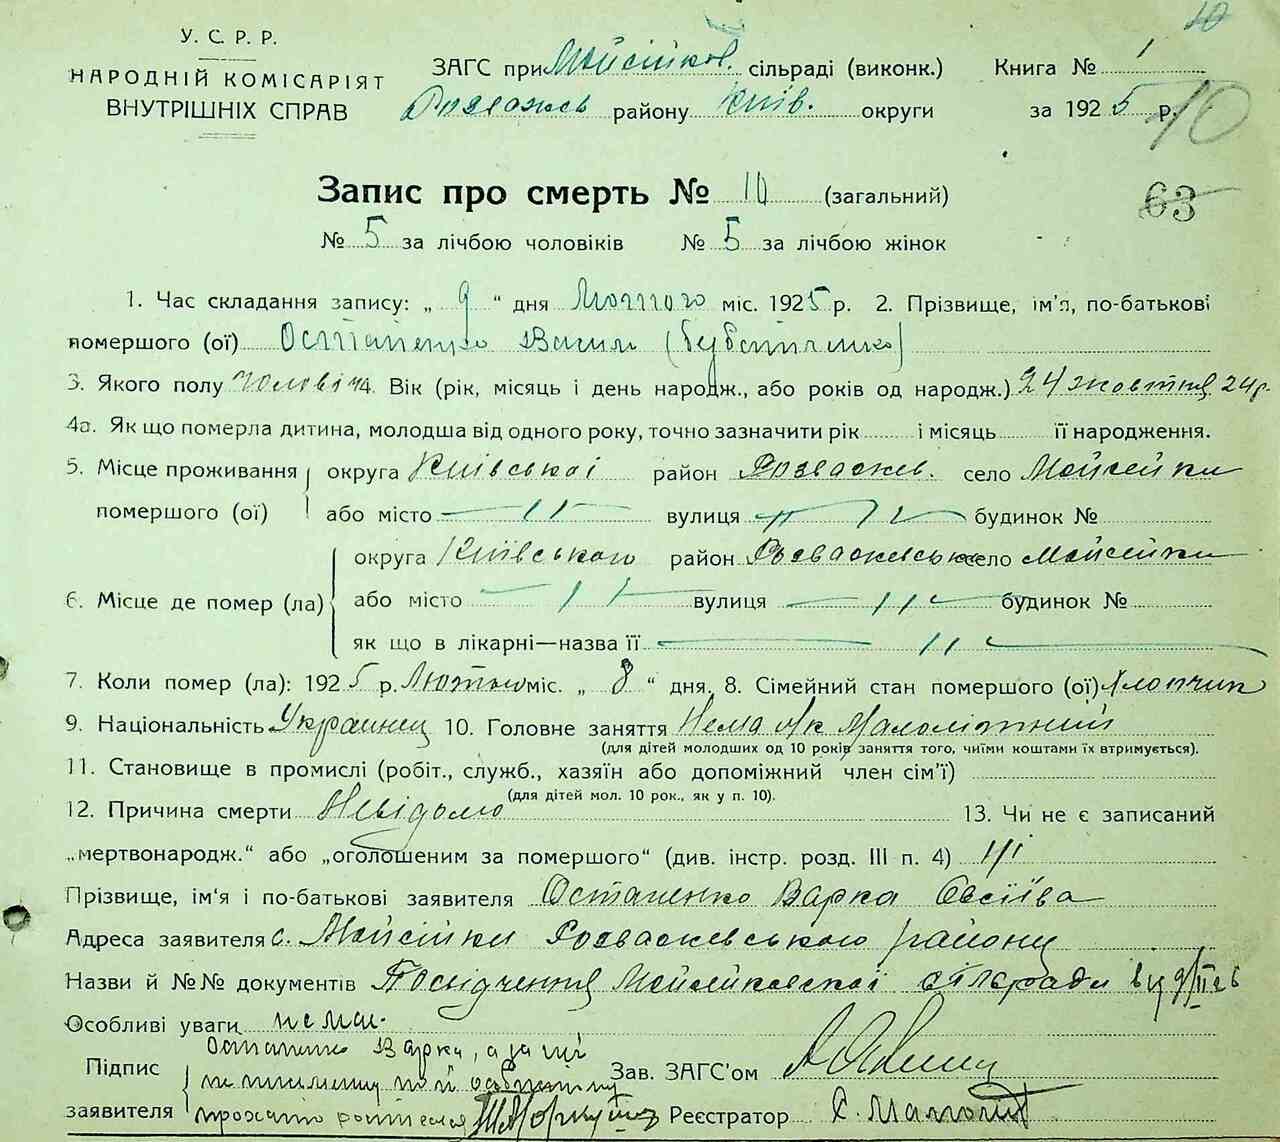 У. С. Р. Р.
НАРОДНІЙ КОМІСАРІЯТ
ВНУТРІШНІХ СПРАВ
ЗАГС при Мойсійков. сільраді (виконк.) Книга № 1
Розважев району Київ. округи за 1925 р.
10
10
63
Запис про смерть № 10 (загальний)
№ 5 за лічбою чоловіків № 5 за лічбою жінок
1. Час складання запису: „ 9 “ дня Лютого міс. 1925 р. 2. Прізвище, ім'я, по-батькові
помершого (ої) Остапенко Василь
3. Якого полу чоловіч 4. Вік (рік, місяць і день народж., або років од народж.) 24 жовтня 24 р.
4а. Як що померла дитина, молодша від одного року, точно зазначити рік і місяць її народження.
5. Місце проживання округа Київської район Розважев. село Мойсейки
помершого (ої) або місто вулиця будинок №
округа Київського район Розважевськ село Мойсейки
6. Місце де помер (ла) або місто вулиця будинок №
як що в лікарні—назва її
7. Коли помер (ла): 1925 р. Лютого міс. „ 8 “ дня. 8. Сімейний стан помершого (ої) Хлопчик
9. Національність Украинец 10. Головне заняття Нема як Малолітній
(для дітей молодших од 10 років заняття того, чиїми коштами їх втримується).
11. Становище в промислі (робіт., служб., хазяїн або допоміжний член сім'ї)
(для дітей мол. 10 рок., як у п. 10).
12. Причина смерти Невідомо 13. Чи не є записаний
„мертвонародж.“ або „оголошеним за помершого“ (див. інстр. розд. III п. 4) Ні
Прізвище, ім'я і по-батькові заявителя Остапенко Варка Овсіїва
Адреса заявителя с. Мойсійки Розважевського району
Назви й №№ документів Посідчення Мойсейковской сілєради
Особливі уваги немає.
Підпис
заявителя
Остапенко Варка, а за ні
Зав. ЗАГС'ом
Реєстратор